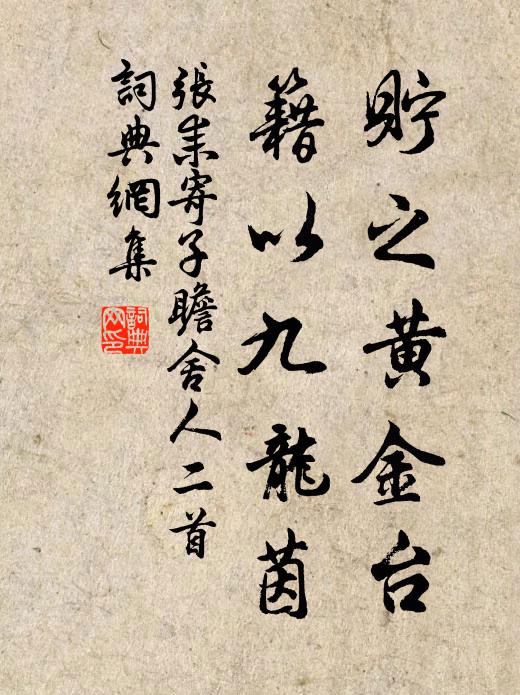 貯之黃金台
籍以九龍茵
張耒寄子瞻舍人二首
詞典網集
詞典網印